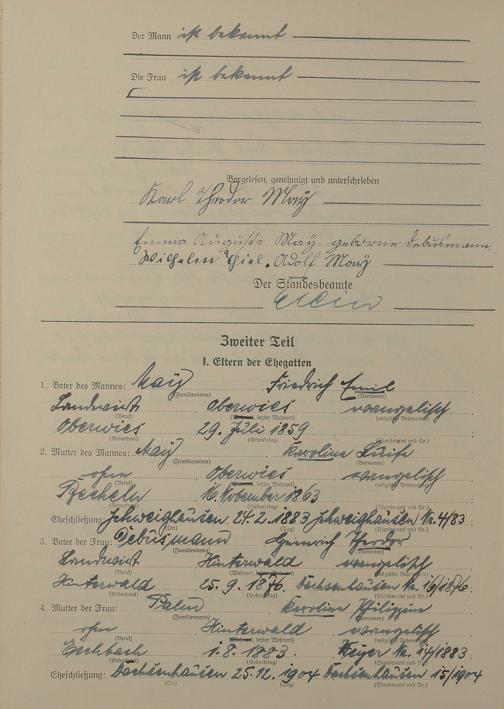 Der Mann ist bekannt
Die Frau ist bekannt
Vorgelesen, genehmigt und unterschrieben
Karl Theodor May
Emma Auguste May geborne Debusmann
Wilhelm Thiel. Adolf May
Der Standesbeamte
Zweiter Teil
1. Eltern der Ehegatten
1. Vater des Mannes: May Friedrich Emil
(Familienname) (Vornamen)
Landwirt Oberwies evangelisch
(Beruf) (Wohnort, letzter Wohnort) (religiöses Bekenntnis)
Oberwies 29. Juli 1859
(Geburtsort) (Geburtstag) (Standesamt und Nr.)
2. Mutter des Mannes: May Karoline Luise
(Familienname) (Vornamen)
ohne Oberwies evangelisch
(Beruf) (Wohnort, letzter Wohnort) (religiöses Bekenntnis)
Becheln 16. November 1863
(Geburtsort) (Geburtstag) (Standesamt und Nr.)
Eheschließung Schweighausen 24.2.1883 Schweighausen Nr. 4/83
3. Vater der Frau: Debusmann Heinrich Theodor
(Familienname) (Vornamen)
Landwirt Hinterwald evangelisch
(Beruf) (Wohnort, letzter Wohnort) (religiöses Bekenntnis)
Hinterwald 25.9.1876. Dachsenhausen Nr. 16/1876
(Geburtsort) (Geburtstag) (Standesamt und Nr.)
4. Mutter der Frau: Palm Karoline Philippine
(Familienname) (Vornamen)
ohne Hinterwald evangelisch
(Beruf) (Wohnort, letzter Wohnort) (religiöses Bekenntnis)
Eschbach 1.8.1883. Weyer Nr. 14/1883
(Geburtsort) (Geburtstag) (Standesamt und Nr.)
Eheschließung: Dachsenhausen 25.12.1904 Dachsenhausen 15/1904
(Ort) (Tag) (Standesamt und Nr.)